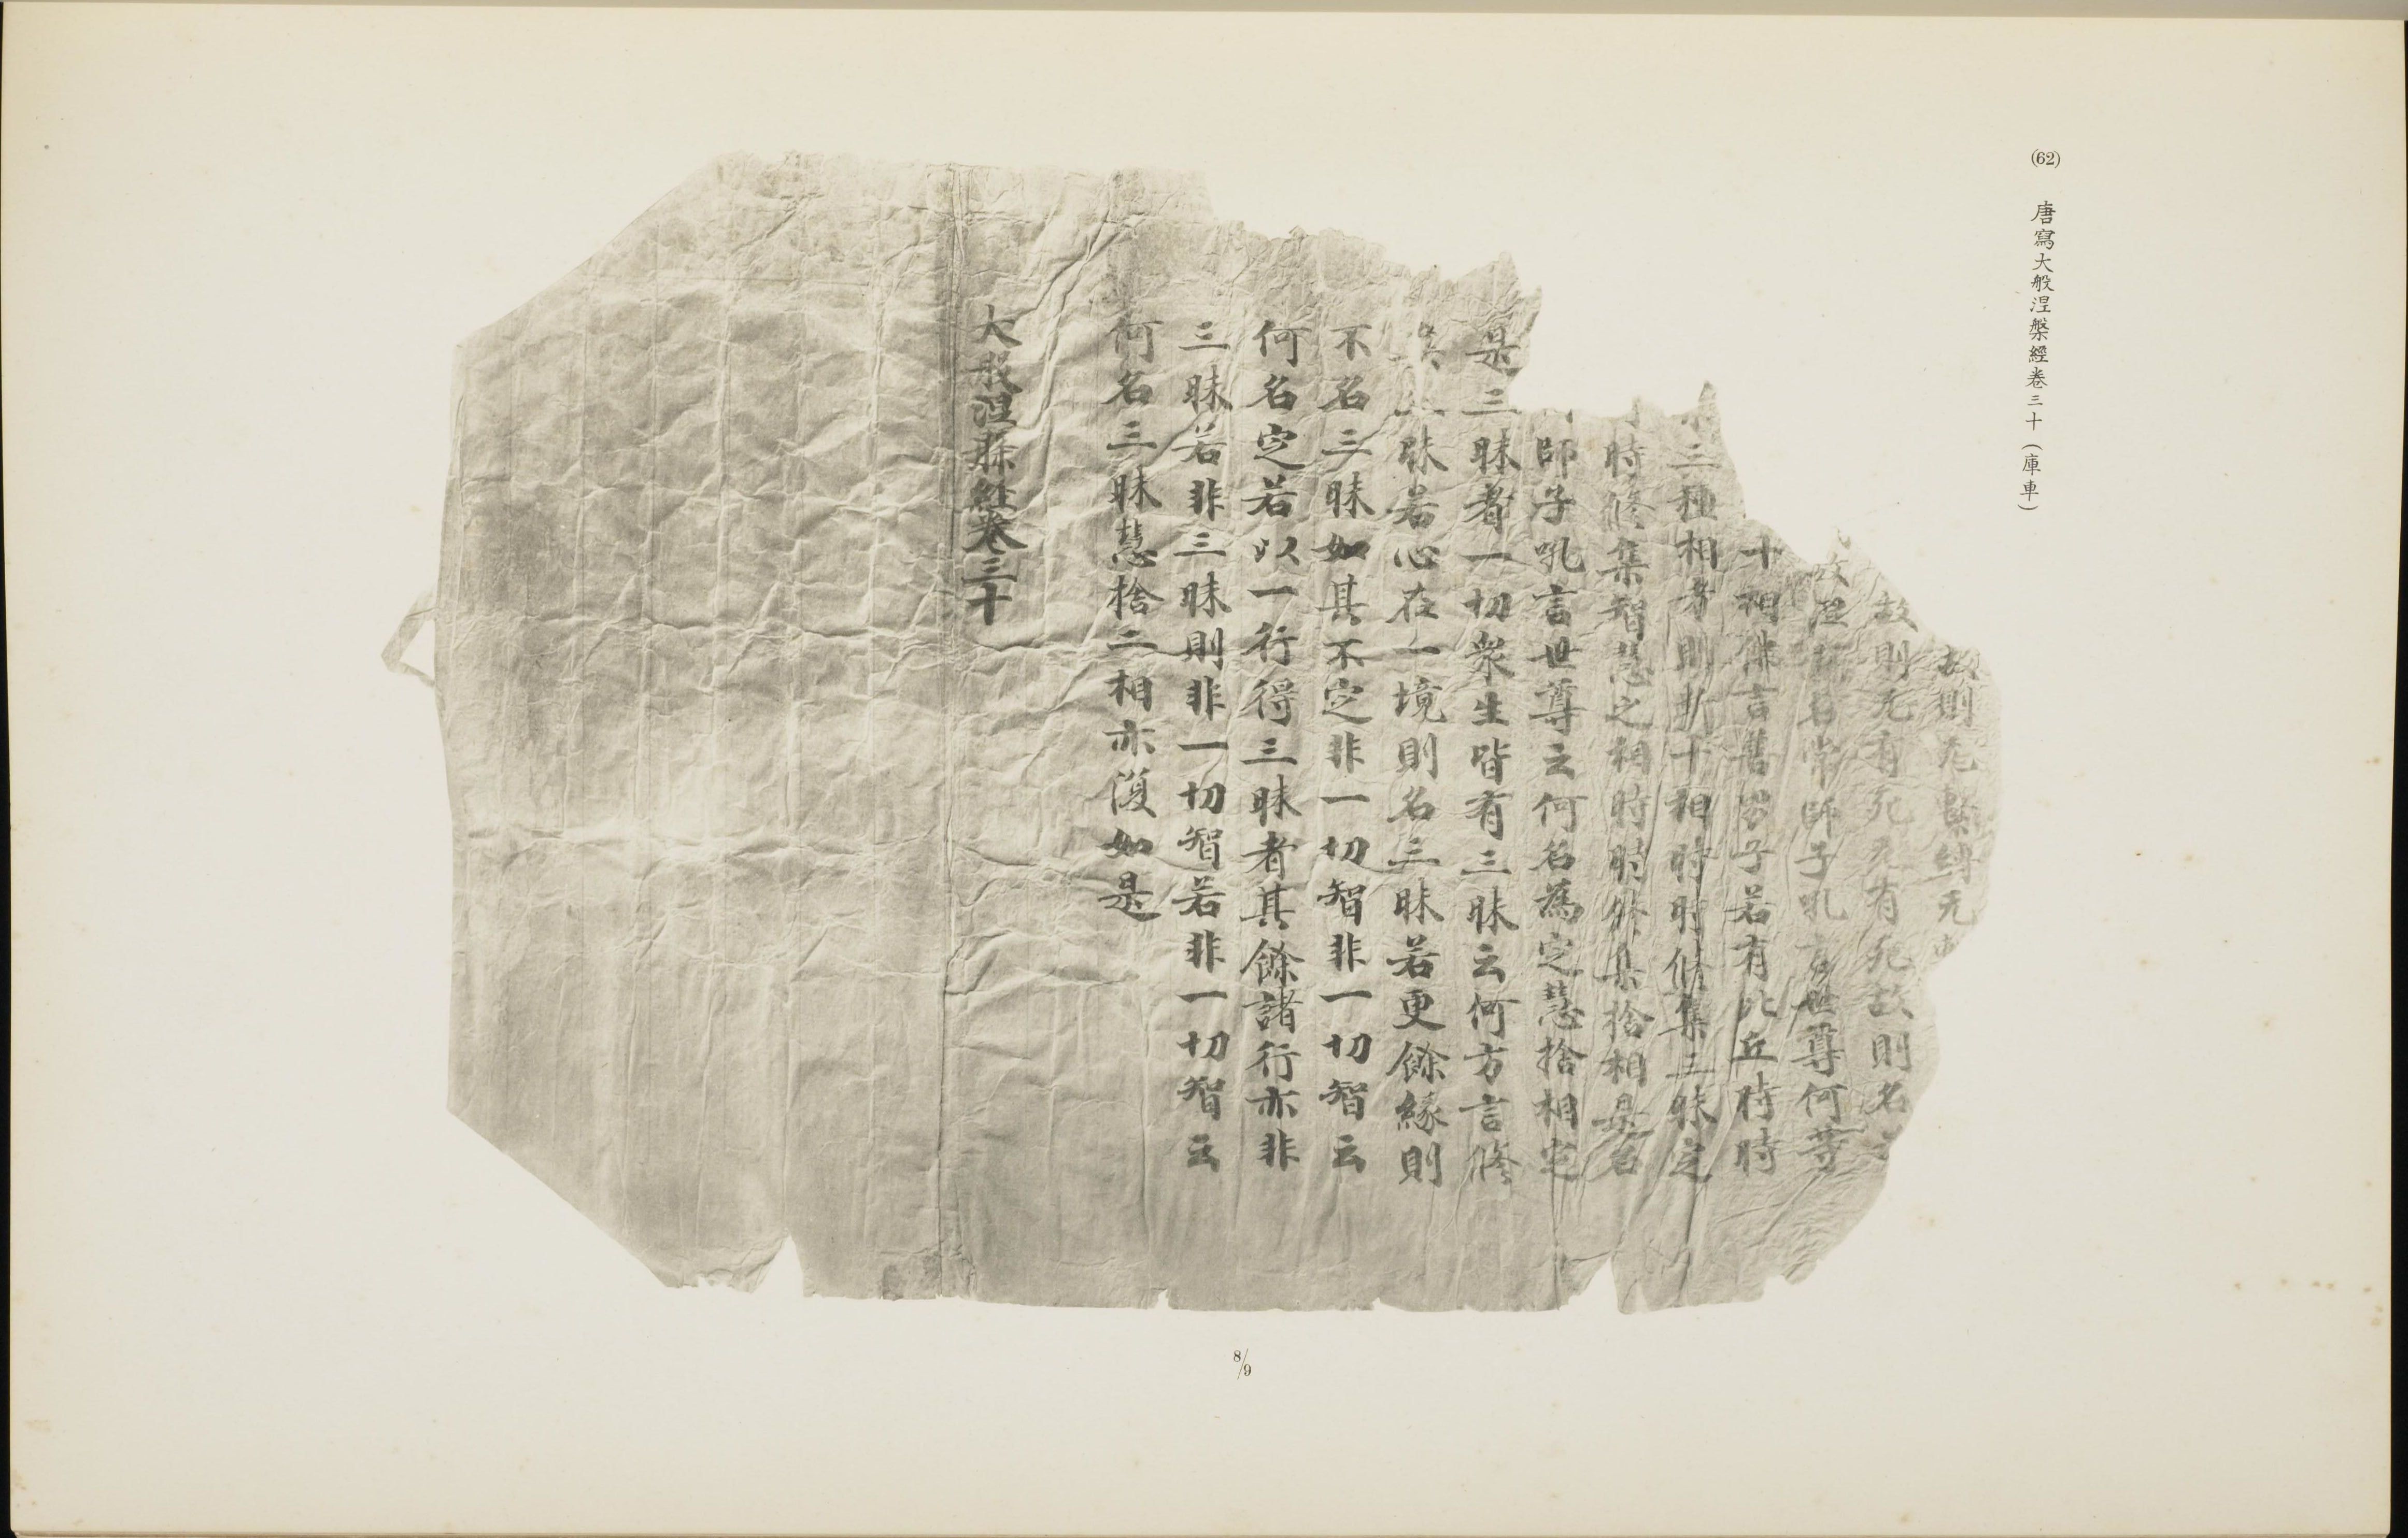 (62) 唐寫大般涅槃經卷三十（庫車）
故則无繫縛无
故則无有死无有死故則名
故涅槃名常師子吼言世尊何等
十相佛言善男子若有比丘時時
三種相者則斷十相時時脩集三昧定
時脩集智慧之相時時脩集捨相是名
師子吼言世尊云何名為定慧捨相定
是三昧者一切衆生皆有三昧云何方言脩
集三昧若心在一境則名三昧若更餘緣則
不名三昧如其不定非一切智非一切智云
何名定若以一行得三昧者其餘諸行亦非
三昧若非三昧則非一切智若非一切智云
何名三昧慧捨二相亦復如是
大般涅槃經卷三十
8/9